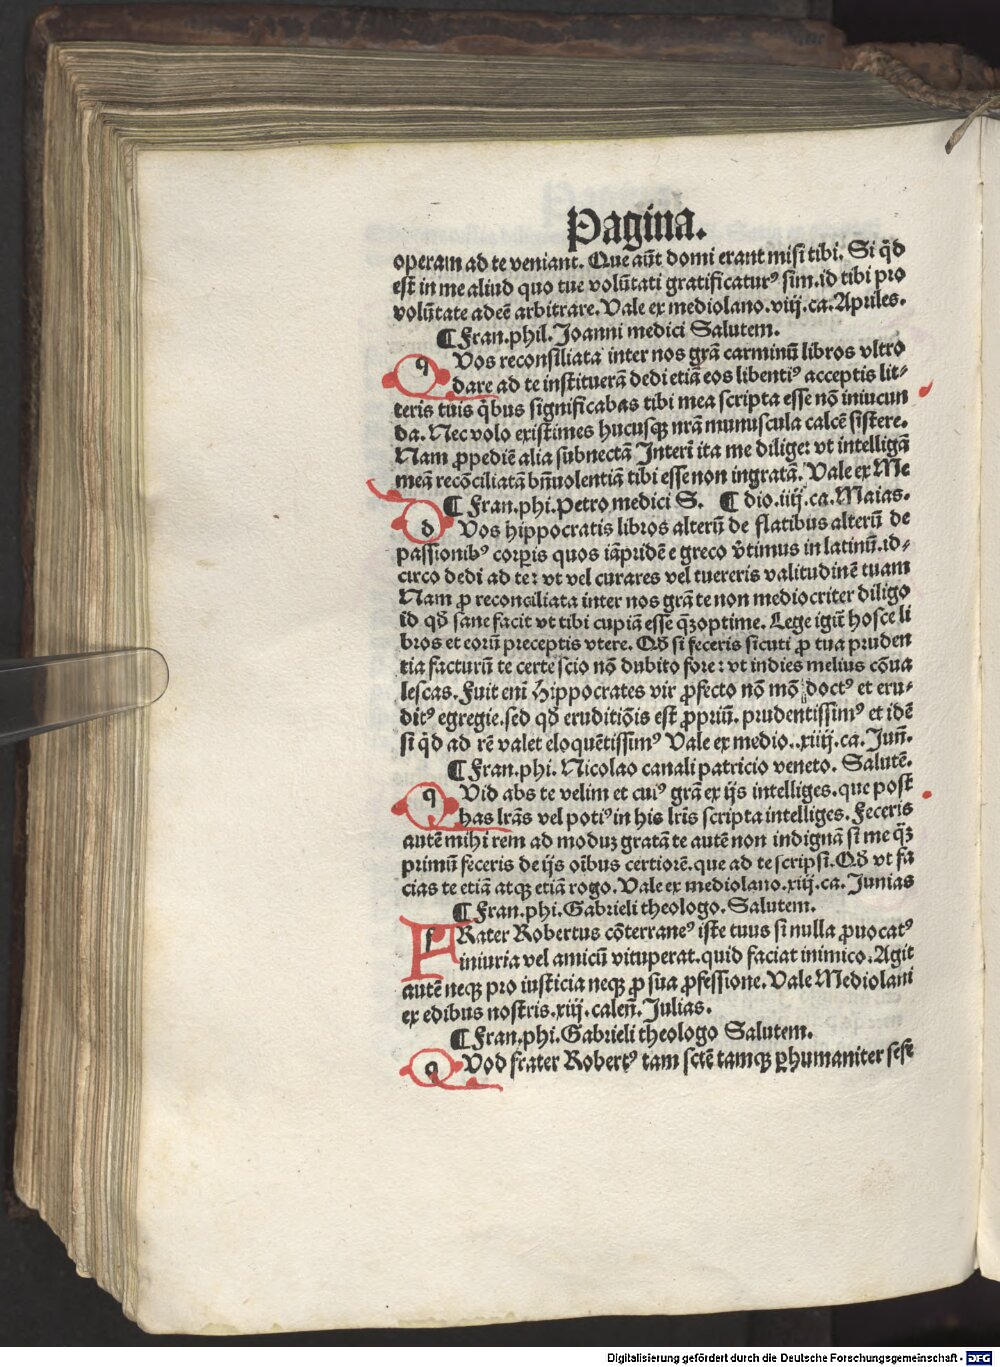 Pagina.
operam ad te veniant. Que aūt domi erant misi tibi. Si q̄d
est in me aliud quo tue volūtati gratificaturꝰ sim.id tibi pro
volūtate adeē arbitrare. Vale ex mediolano.viij.ca. Apriles.
¶ Fran.phil. Joanni medici Salutem.
q Vos reconsiliata inter nos grā carminū libros vltro
dare ad te instituerā dedi etiā eos libentiꝰ acceptis lit⸗
teris tuis q̄bus significabas tibi mea scripta esse nō iniucun
da. Nec volo existimes hucusqꝫ nrā munuscula calcē sistere.
Nam ꝓpediē alia subnectā Interī ita me dilige: vt intelligā
meā recōciliatā bn̄uolentiā tibi esse non ingratā. Vale ex Me
¶ Fran.phi. Petro medici S. ¶ dio.iiij.ca. Maias.
d Vos hippocratis libros alterū de flatibus alterū de
passionibꝰ corꝑis quos iāpridē e greco v̄timus in latinū.id⸗
circo dedi ad te: vt vel curares vel tuereris valitudinē tuam
Nam ꝓ reconciliata inter nos grā te non mediocriter diligo
id qđ sane facit vt tibi cupiā esse qꝫoptime. Lege igit̄ hosce li
bros et eorū preceptis vtere. Qđ si feceris sicuti ꝓ tua pruden
tia facturū te certe scio nō dubito fore: vt indies melius cōua
lescas. Fuit eni Hippocrates vir ꝓfecto nō mō doctꝰ et eru⸗
ditꝰ egregie.sed qđ eruditiōis est ꝓpriū. prudentissimꝰ et idē
si q̄d ad rē valet eloquētissimꝰ Vale ex medio..xiiij.ca. Jun̄.
¶ Fran.phi. Nicolao canali patricio veneto. Salutē.
q Vid abs te velim et cuiꝰ grā ex ijs intelliges.que post
has lrās vel potiꝰ in his lris scripta intelliges. Feceris
autē mihi rem ad moduꝫ gratā te autē non indignā si me qꝫ
primū feceris de ijs oībus certiorē.que ad te scripsi. Qđ vt fa
cias te etiā atqꝫ etiā rogo. Vale ex mediolano.xiij.ca. Junias
¶ Fran.phi. Gabrieli theologo. Salutem.
f Rater Robertus cōterraneꝰ iste tuus si nulla ꝓuocatꝰ
iniuria vel amicū vituperat.quid faciat inimico. Agit
autē neqꝫ pro iusticia neqꝫ ꝓ sua ꝓfessione. Vale Mediolani
ex edibus nostris.xiij.calen̄. Julias.
¶ Fran.phi. Gabrieli theologo Salutem.
q Vod frater Robertꝰ tam sctē tamqꝫ ꝑhumaniter sese
Digitalisierung gefördert durch die Deutsche Forschungsgemeinschaft - DFG